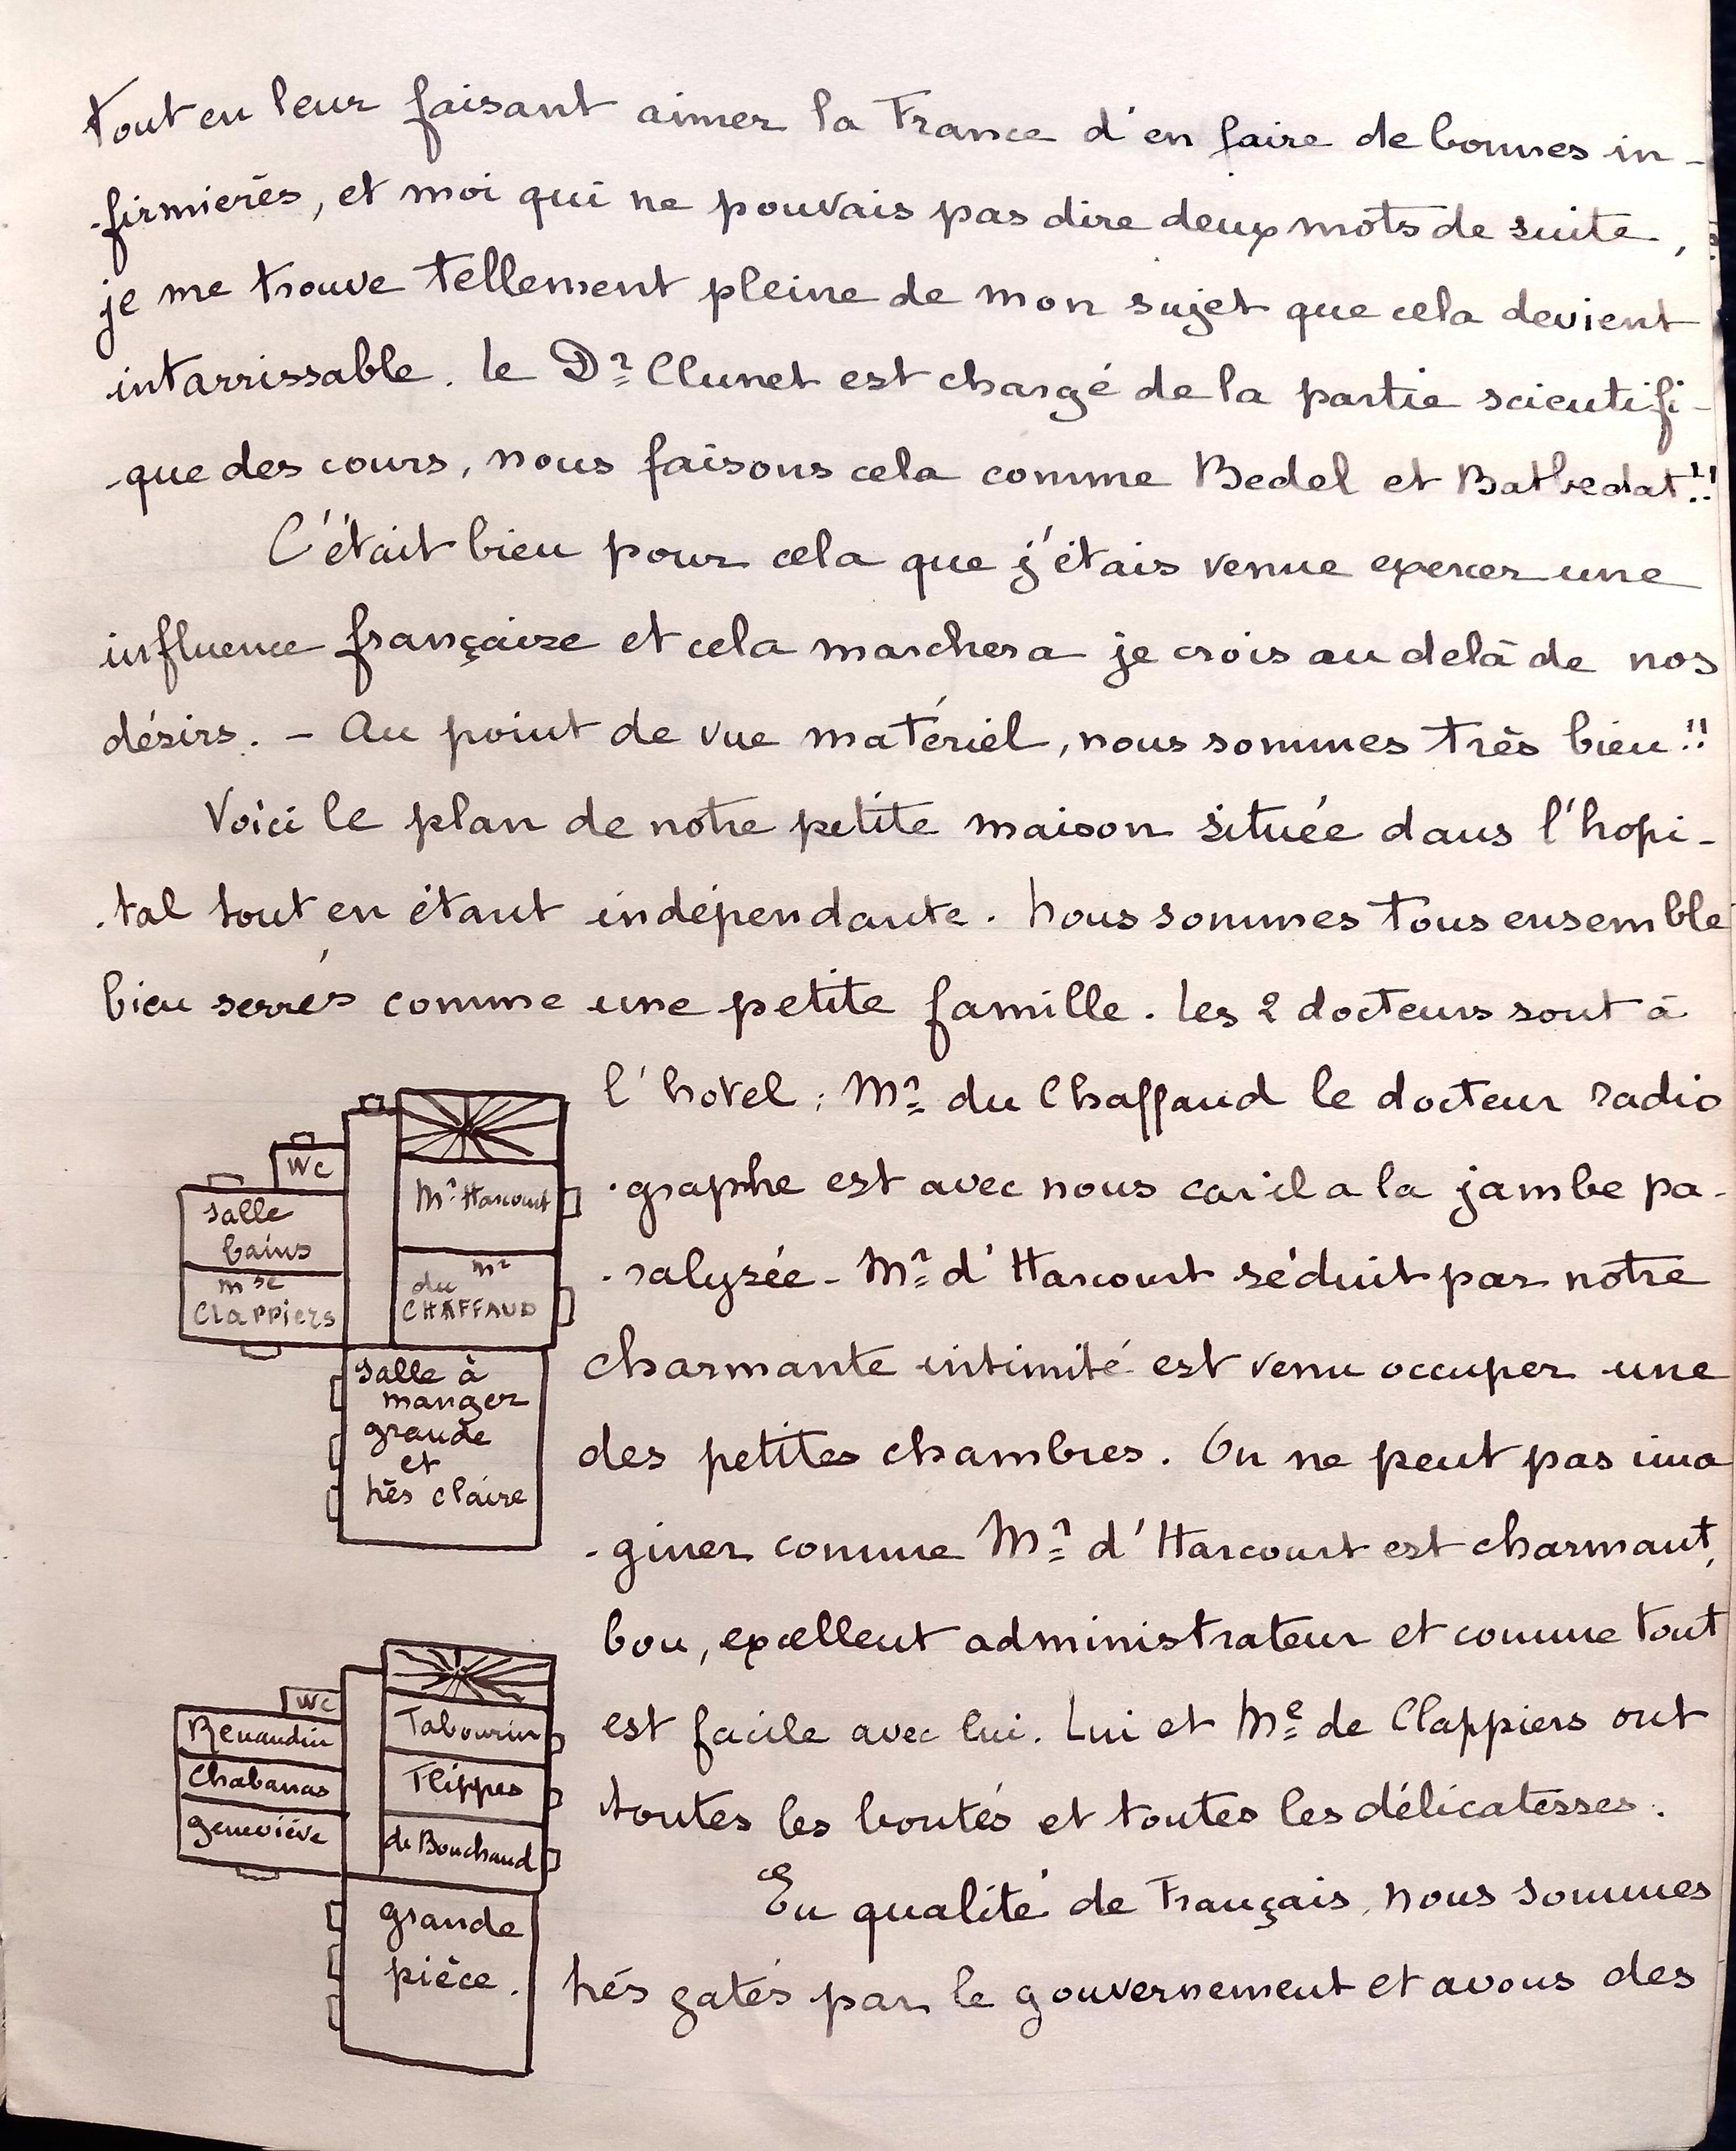 tout en leur faisant aimer la France d'en faire de bonnes in-
-firmières, et moi qui ne pouvais pas dire deux mots de suite,
je me trouve tellement pleine de mon sujet que cela devient
intarrissable. Le Dr Clunet est chargé de la partie scientifi-
-que des cours, nous faisons cela comme Bedel et Bathedat!!
C'était bien pour cela que j'étais venue exercer une
influence française et cela marchera je crois au delà de nos
désirs. - Au point de vue matériel, nous sommes très bien!!
Voici le plan de notre petite maison située dans l'hopi-
-tal tout en étant indépendante. Nous sommes tous ensemble
bien serrés comme une petite famille. Les 2 docteurs sont à
l'hotel; Mr du Chaffaud le docteur radio
-graphe est avec nous car il a la jambe pa-
-ralysée - Mr d'Harcourt séduit par notre
charmante intimité est venu occuper une
des petites chambres. On ne peut pas ima
-giner comme Mr d'Harcourt est charmant,
bon, excellent administrateur et comme tout
est facile avec lui. Lui et Me de Clappiers ont
toutes les bontés et toutes les délicatesses.
En qualité de Français, nous sommes
très gatés par le gouvernement et avons des
WC
Mr Harcourt
salle
bains
mse
Clappiers
mr
du
CHAFFAUD
salle à
manger
grande
et
très claire
WC
Renaudin
Chabanas
geneviève
Tabourin
Flippes
de Bouchaud
grande
pièce.